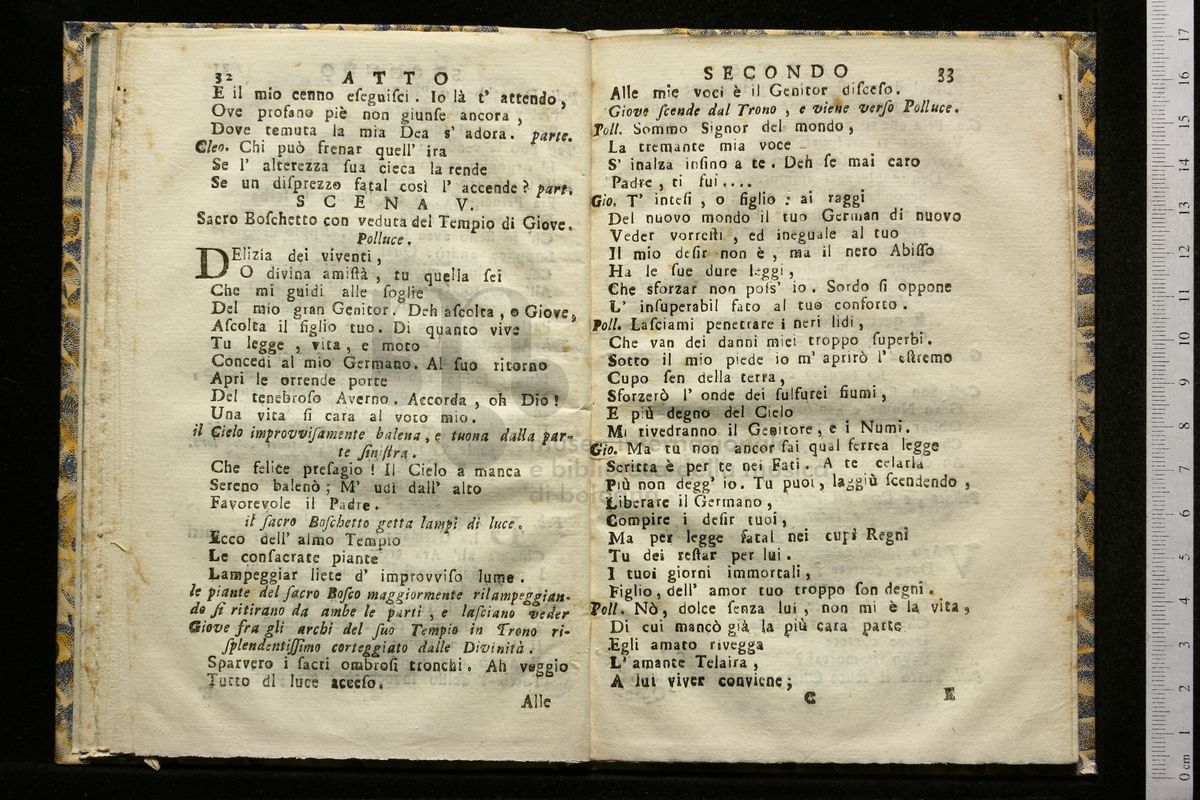 32 ATTO
E il mio cenno eſeguiſci. Io là t' attendo,
Ove profano piè non giunſe ancora,
Dove temuta la mia Dea s' adora. parte.
Cleo. Chi può frenar quell' ira
Se l' alterezza ſua cieca la rende
Se un diſprezzo fatal così l' accende? part.
SCENA V.
Sacro Boſchetto con veduta del Tempio di Giove.
Polluce.
DElizia dei viventi,
O divina amiſtà, tu quella ſei
Che mi guidi alle ſoglie
Del mio gran Genitor. Deh aſcolta, o Giove,
Aſcolta il figlio tuo. Di quanto vive
Tu legge, vita, e moto
Concedi al mio Germano. Al ſuo ritorno
Apri le orrende porte
Del tenebroſo Averno. Accorda, oh Dio!
Una vita ſi cara al voto mio.
il Cielo improvviſamente balena, e tuona dalla par-
te ſiniſtra.
Che felice preſagio! Il Cielo a manca
Sereno balenò; M' udì dall' alto
Favorevole il Padre.
il ſacro Boſchetto getta lampi di luce.
Ecco dell' almo Tempio
Le conſacrate piante
Lampeggiar liete d' improvviſo lume.
le piante del ſacro Boſco maggiormente rilampeggian-
do ſi ritirano da ambe le parti, e laſciano veder
Giove fra gli archi del ſuo Tempio in Trono ri-
ſplendentiſſimo corteggiato dalle Divinità.
Sparvero i ſacri ombroſi tronchi. Ah veggio
Tutto di luce acceſo.
Alle
SECONDO 33
Alle mie voci è il Genitor diſceſo.
Giove ſcende dal Trono, e viene verſo Polluce.
Poll. Sommo Signor del mondo,
La tremante mia voce
S' inalza inſino a te. Deh ſe mai caro
Padre, ti fui....
Gio. T' inteſi, o figlio: ai raggi
Del nuovo mondo il tuo German di nuovo
Veder vorreſti, ed ineguale al tuo
Il mio deſir non è, ma il nero Abiſſo
Ha le ſue dure leggi,
Che sforzar non poſs' io. Sordo ſi oppone
L' inſuperabil fato al tuo conforto.
Poll. Laſciami penetrare i neri lidi,
Che van dei danni miei troppo ſuperbi.
Sotto il mio piede io m' aprirò l' eſtremo
Cupo ſen della terra,
Sforzerò l' onde dei ſulfurei fiumi,
E più degno del Cielo
Mi rivedranno il Genitore, e i Numi.
Gio. Ma tu non ancor ſai qual ferrea legge
Scritta è per te nei Fati. A te celarla
Più non degg' io. Tu puoi, laggiù ſcendendo,
Liberare il Germano,
Compire i deſir tuoi,
Ma per legge fatal nei cupi Regni
Tu dei reſtar per lui.
I tuoi giorni immortali,
Figlio, dell' amor tuo troppo ſon degni.
Poll. Nò, dolce ſenza lui, non mi è la vita,
Di cui mancò già la più cara parte
Egli amato rivegga
L' amante Telaira,
A lui viver conviene;
C E